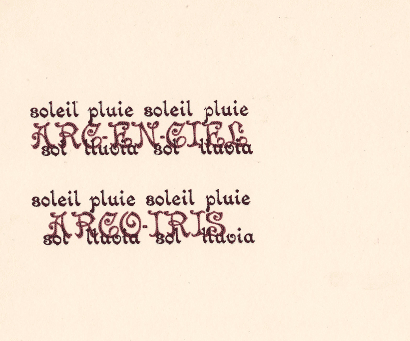 soleil pluie soleil pluie
ARC-EN-CIEL
sol lluvia sol lluvia
soleil pluie soleil pluie
ARCO-IRIS
sol lluvia sol lluvia